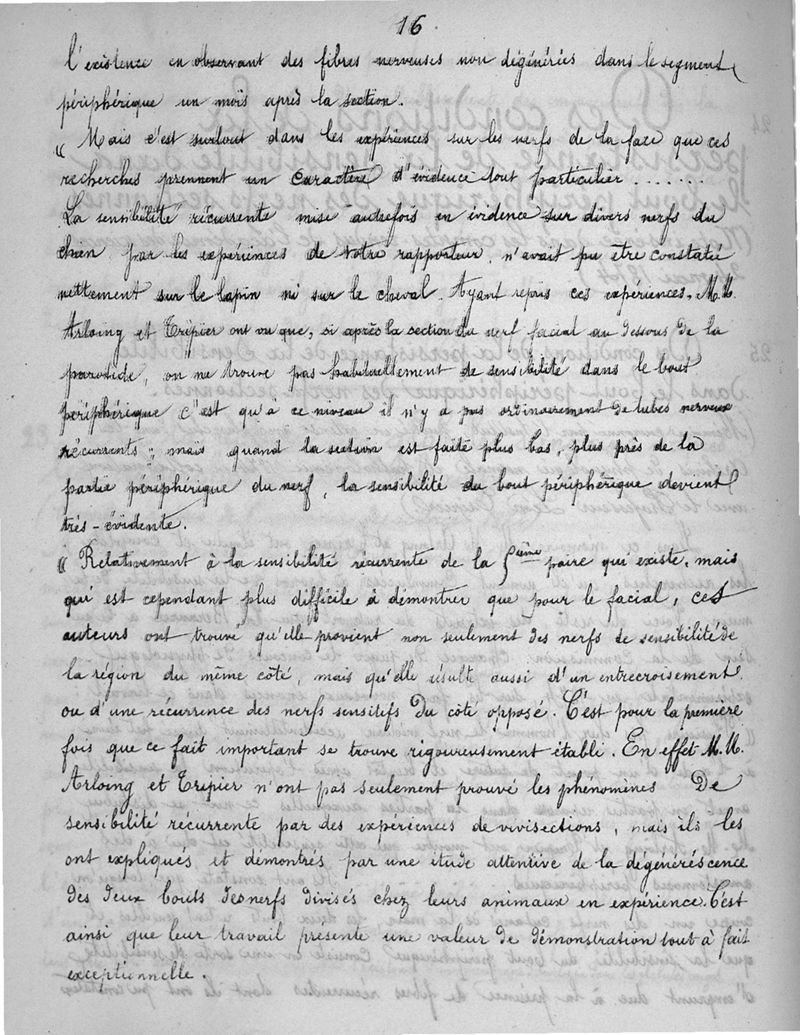 16
l'existence en observant des fibres nerveuses non dégénérées dans le segment
périphérique un mois après la section.
« Mais c'est surtout dans les expériences sur les nerfs de la face que ces
recherches prennent un caractère d'évidence tout particulier .......
La sensibilité récurrente mise autrefois en évidence sur divers nerfs du
chien par les expériences de votre rapporteur, n'avait pu être constatée
nettement sur le lapin ni sur le cheval. Ayant repris ces expériences, M.M.
Arloing et Tripier ont vu que, si après la section du nerf facial au dessous de la
parotide, on ne trouve pas habituellement de sensibilité dans le bout
périphérique c'est qu'à ce niveau il n'y a pas ordinairement de tubes nerveux
récurrents ; mais quand la section est faite plus bas, plus près de la
partie périphérique du nerf, la sensibilité du bout périphérique devient
très-évidente.
« Relativement à la sensibilité récurrente de la 5ème paire qui existe, mais
qui est cependant plus difficile à démontrer que pour le facial, ces
auteurs ont trouvé qu'elle provient non seulement des nerfs de sensibilité de
la région du même côté, mais qu'elle résulte aussi d'un entrecroisement
ou d'une récurrence des nerfs sensitifs du côté opposé. C'est pour la première
fois que ce fait important se trouve rigoureusement établi. En effet M.M.
Arloing et Tripier n'ont pas seulement prouvé les phénomènes de
sensibilité récurrente par des expériences de vivisections, mais ils les
ont expliqués et démontrés par une étude attentive de la dégénéréscence
des deux bouts des nerfs divisés chez leurs animaux en expérience. C'est
ainsi que leur travail présente une valeur de démonstration tout à fait
exceptionnelle.